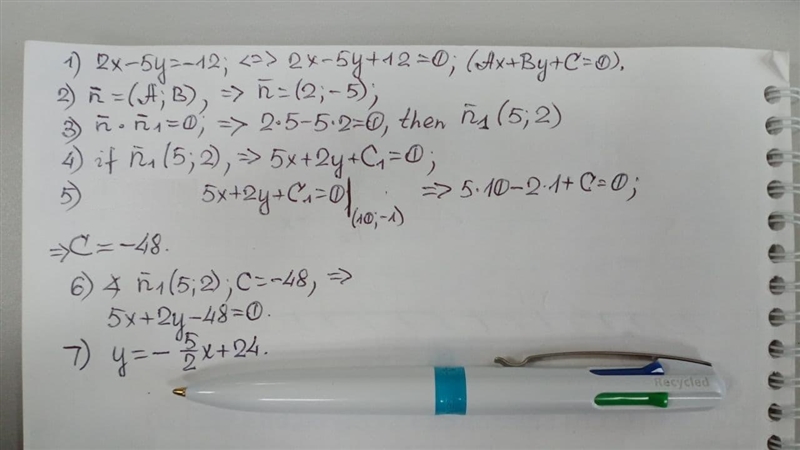 1) 2x-5y=-12; <=> 2x-5y+12=0; (Ax+By+C=0).
2) n̄=(A;B), => n̄=(2;-5);
3) n̄·n̄₁=0; => 2·5-5·2=0, then n̄₁(5;2)
4) if n̄₁(5;2), => 5x+2y+C₁=0;
5) 5x+2y+C₁=0|(10;-1) => 5·10-2·1+C=0;
=> C=-48.
6) ∢ n̄₁(5;2); C=-48, =>
5x+2y-48=0.
7) y=-5/2x+24.
Recycled